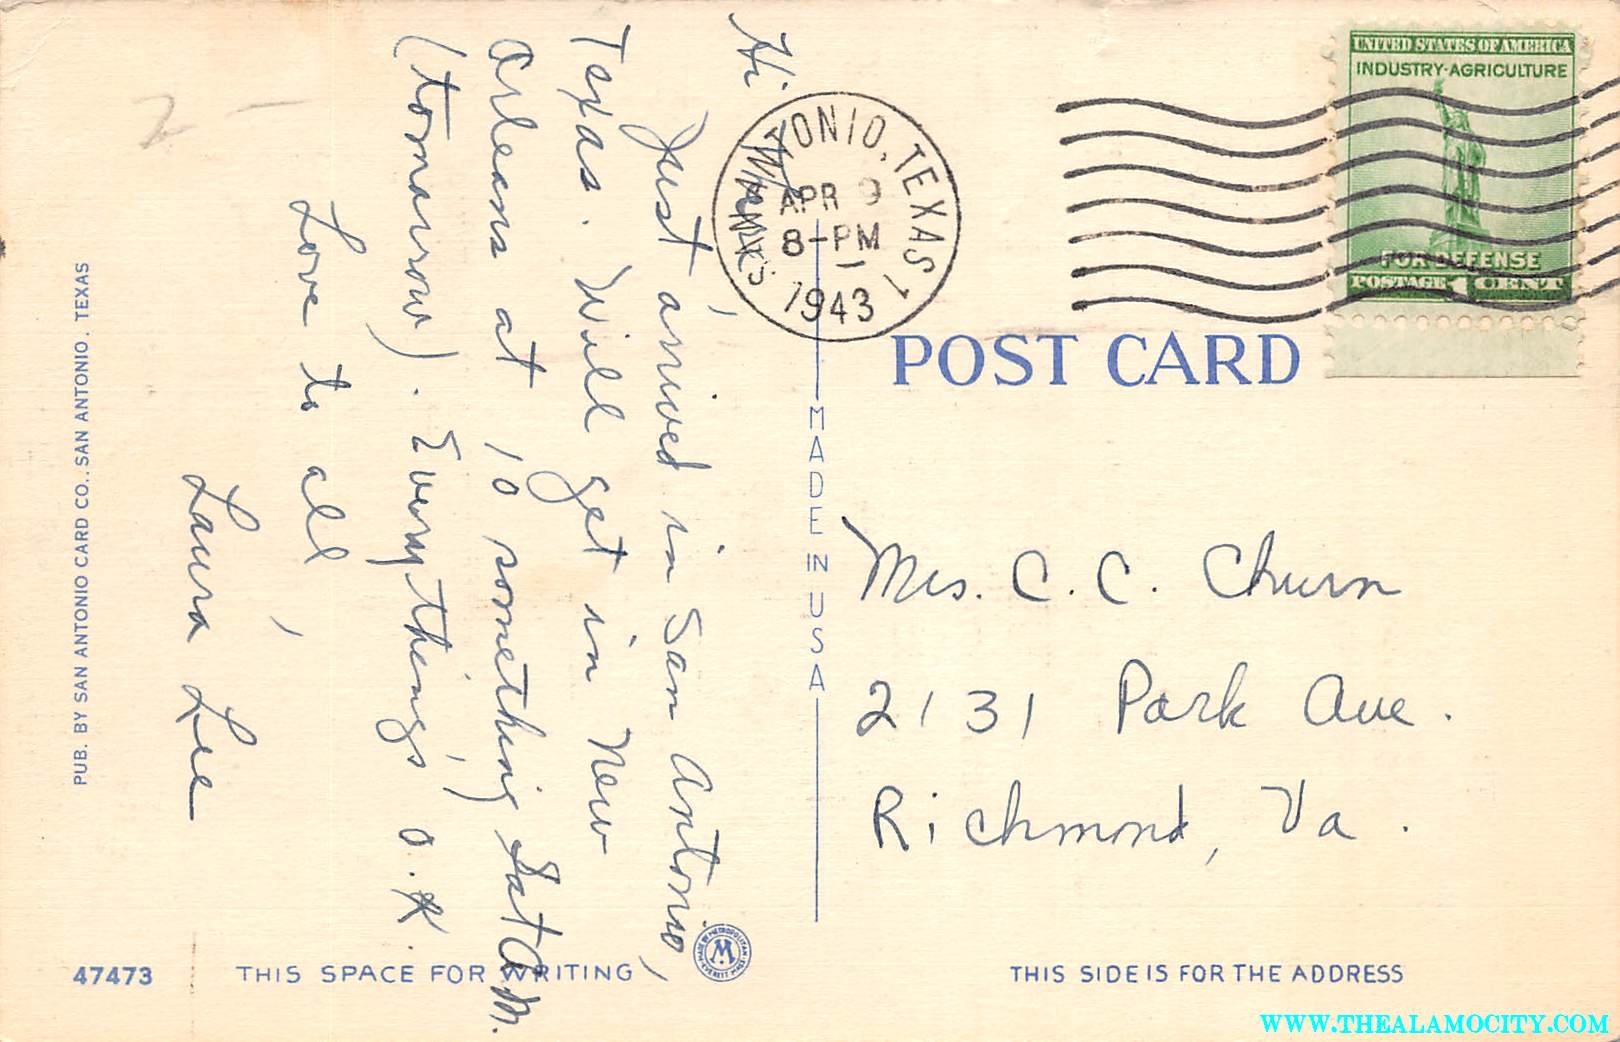 UNITED STATES OF AMERICA
INDUSTRY-AGRICULTURE
FOR DEFENSE
POSTAGE 1 CENT
SAN ANTONIO, TEXAS 1
APR 9
8-PM
1943
POST CARD
MADE IN USA
Hi
Just arrived in San Antonio,
Texas. Will get in New
Orleans at 10 something Sat A.M.
(tomarrow). Everything's O.K.
Love to all,
Laura Lee
Mrs. C. C. Churn
2131 Park Ave.
Richmond, Va.
PUB. BY SAN ANTONIO CARD CO., SAN ANTONIO, TEXAS
47473
THIS SPACE FOR WRITING
MADE BY METROPOLITAN
M
EVERETT MASS
THIS SIDE IS FOR THE ADDRESS
WWW.THEALAMOCITY.COM